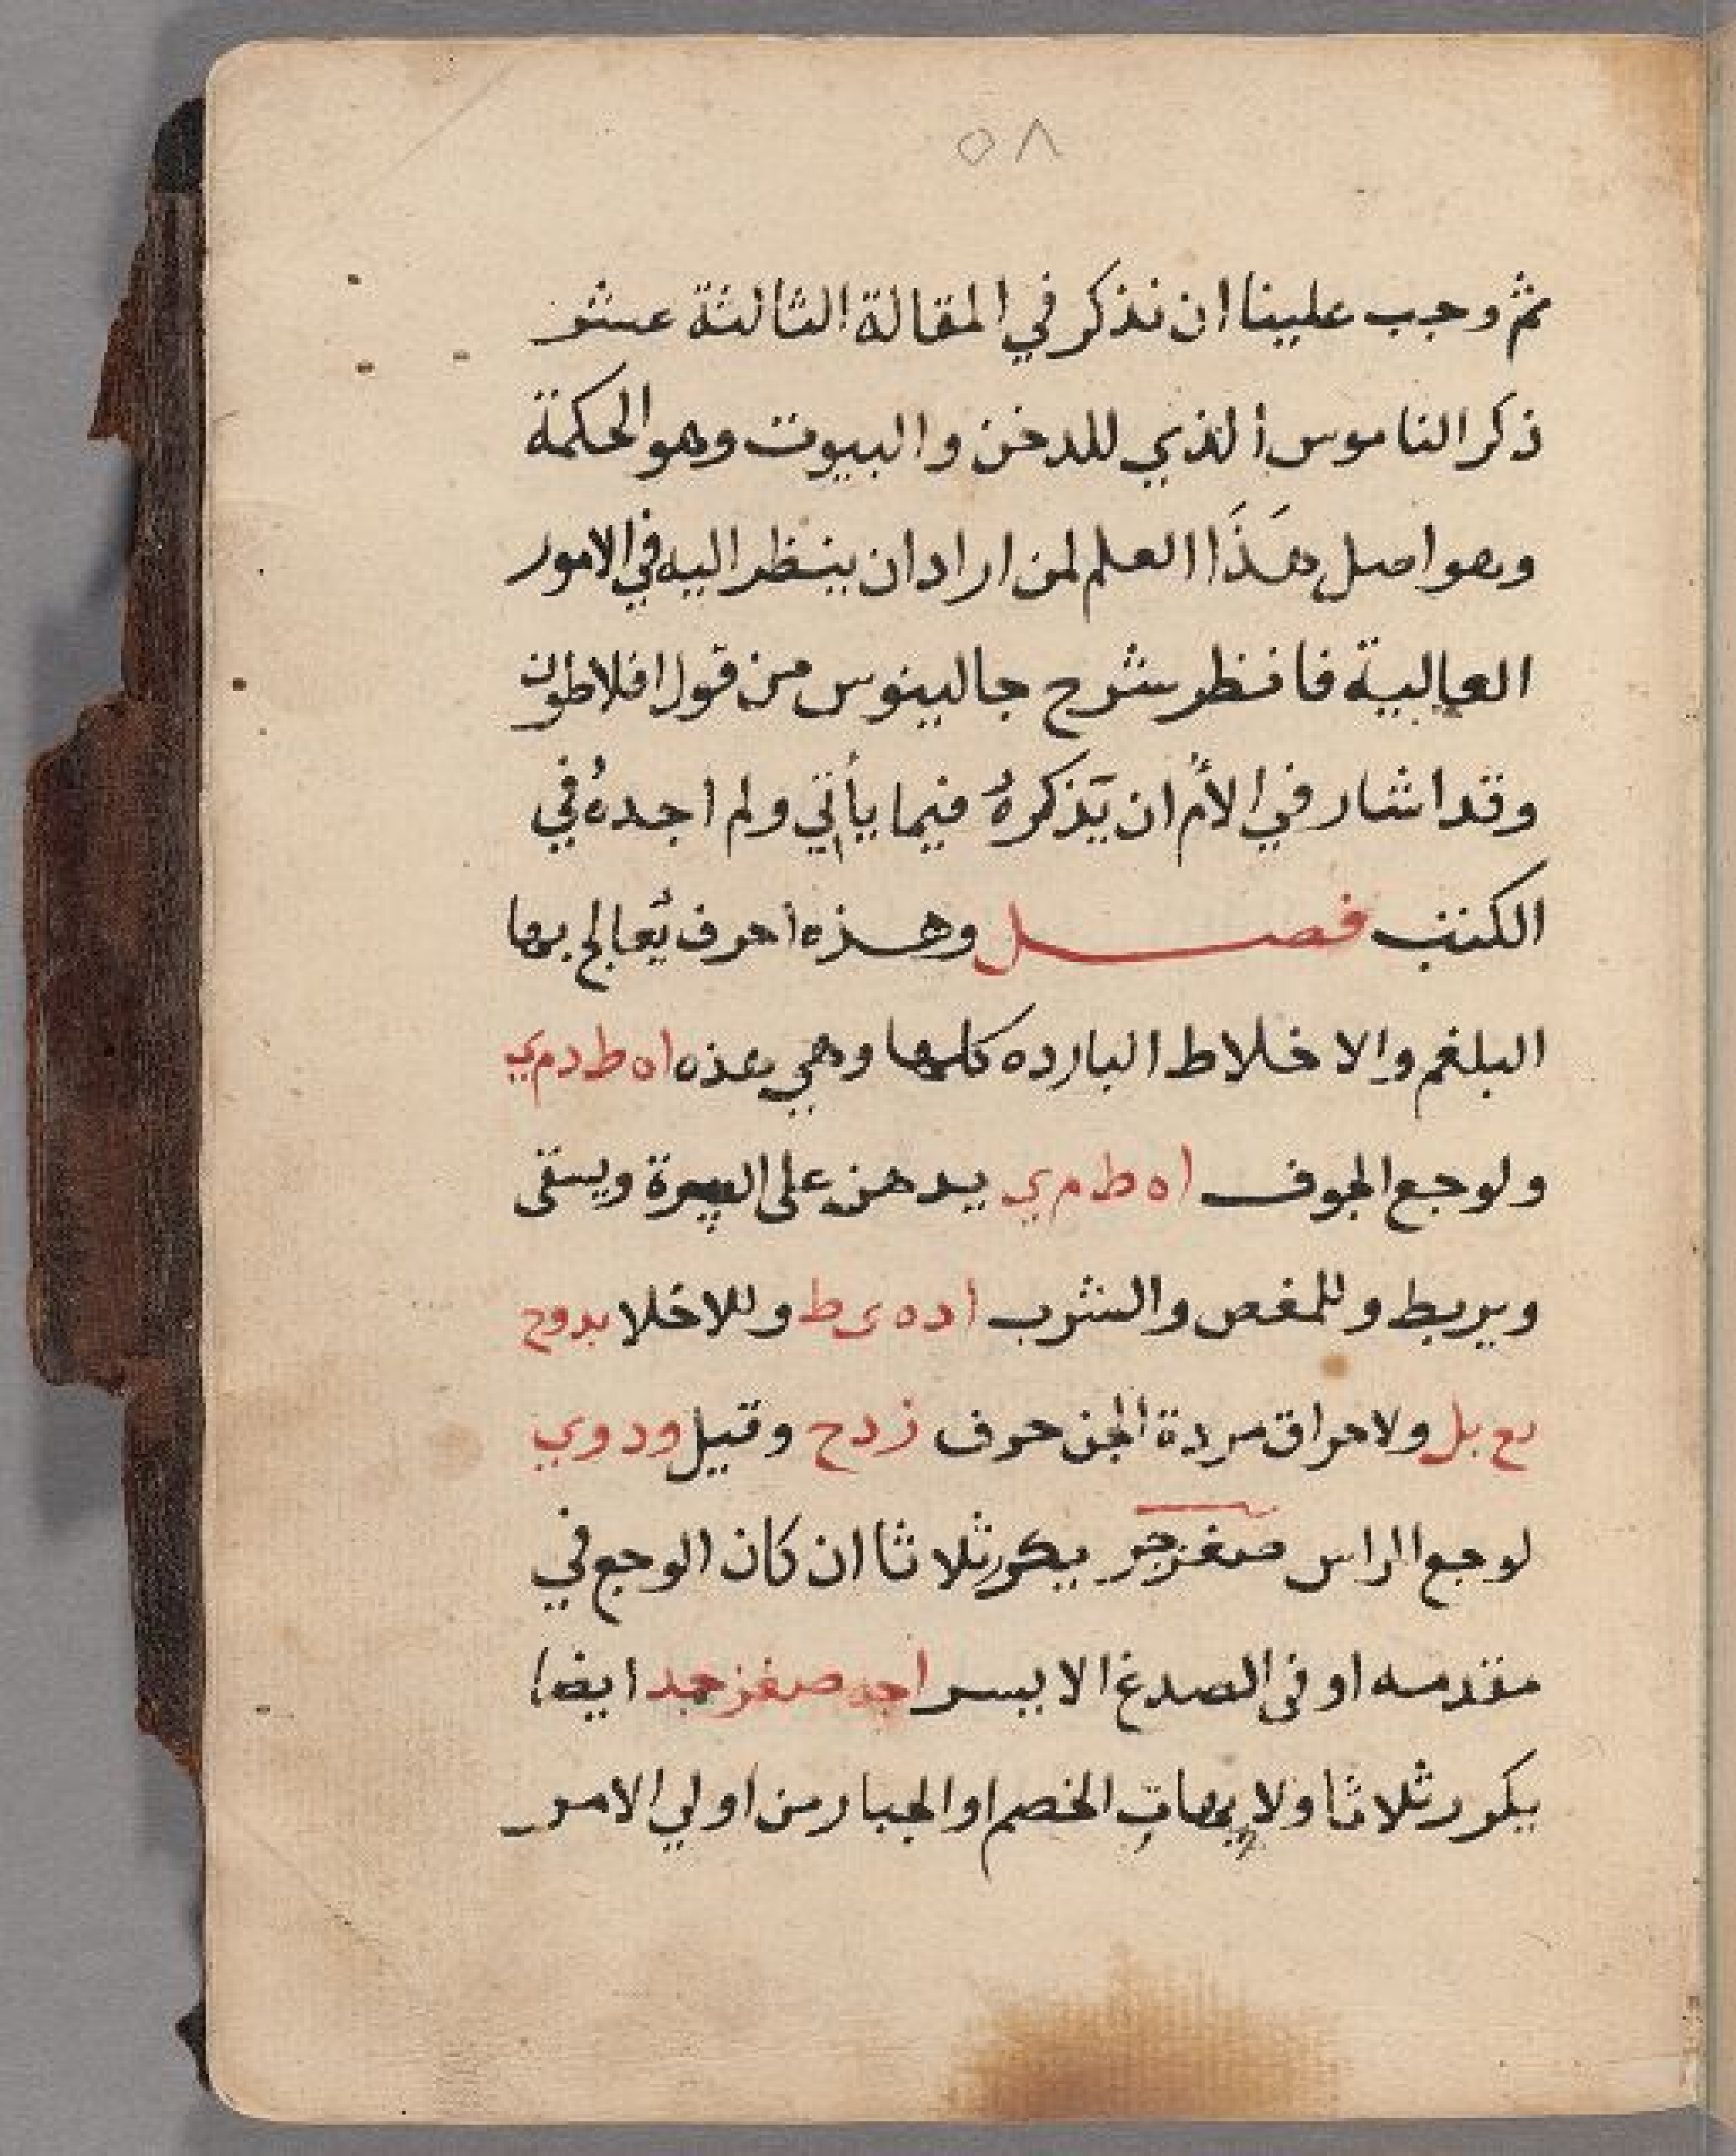 ٥٨
ثم وجب علينا ان نذكر في المقالة الثالثة عشر
ذكر الناموس الذي للدخن والبيوت وهو الحكمة
وهو اصل هَذَا العلم لمن اراد ان ينظر اليه في الامور
العالية فانظر شرح جالينوس من قول افلاطون
وقد اشار في الأم ان يذكرهُ فيما يأتي ولم اجدهُ في
الكتب فصل وهذه احرف يُعالج بها
البلغم والاخلاط البارده كلها وهي هذه ا ه ط د م ي
ولوجع الجوف ا ه ط م ي يدهن على السرة ويسقى
ويربط وللمغص والشرب ا د ه ى ط وللاخلا بدوح
بل ولاحراق مردة الجن حرف زدح وقيل ودوي
لوجع الراس صغزجر يكرر ثلاثا ان كان الوجع في
مقدمه او في الصدغ الايسر اجد صغزجد ايضا
يكرر ثلاثا الخصم او الجبار من اولي الامر